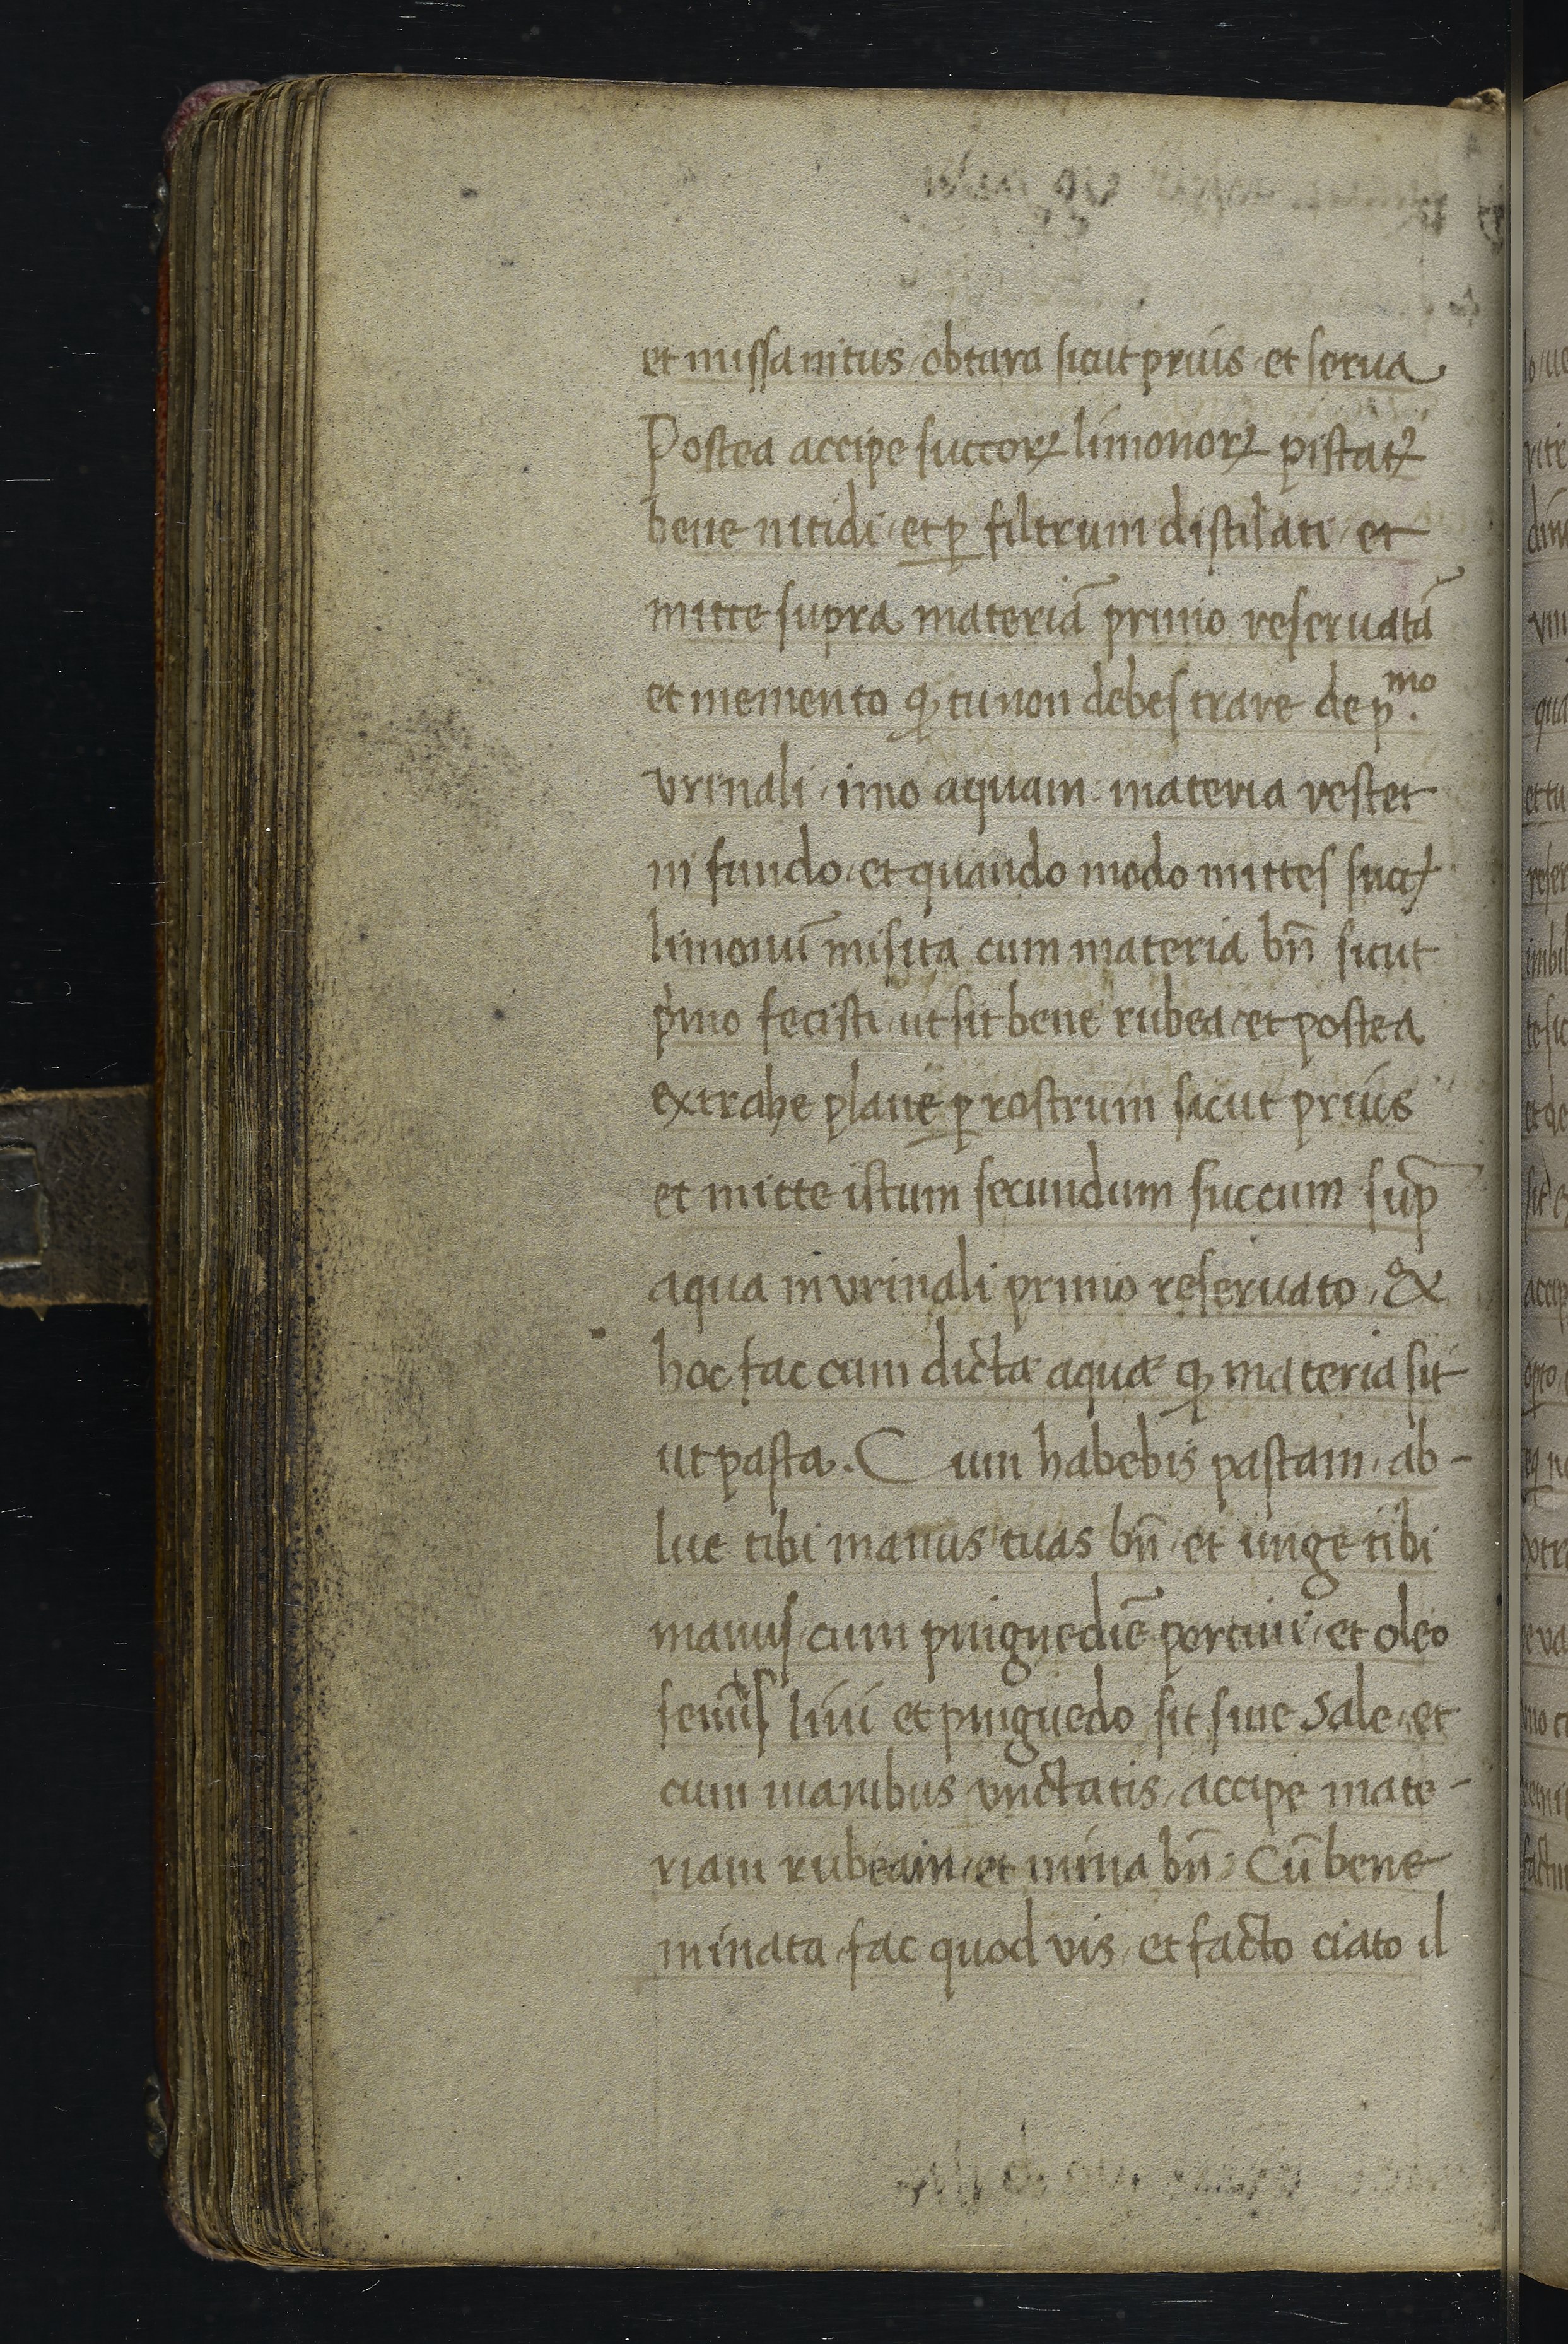 et missanitus / obtura sicut prius / et serua
Postea accipe succorꝝ limonorꝝ pistatꝝ
bene nitidi / et ꝑ filtrum distilati / et
mitte supra materiā primo reseruatā
et memento ꝙ tu non debes trare de pͫᵒ.
vrinali / imo aquam materia restet
in fundo / et quando modo mittes succꝝ
limonū misita cum materia bn̄ sicut
pͥmo fecisti / ut sit bene rubea / et postea
extrahe plane ꝑ rostrum sicut prius
et mitte istum secundum succum sup̄
aqua in vrinali primo reseruato / &
hoc fac cum dicta aqua ꝙ materia sit
ut pasta. Cum habebis pastam / ab-
lue tibi manus tuas bn̄ / et unge tibi
manus / cum pinguediē porcini / et oleo
lini et pinguedo sit sine sale / et
cum manibus vnctatis / accipe mate-
riam rubeam / et mina bn̄: Cū bene
minata / fac quod vis / et facto ciato il